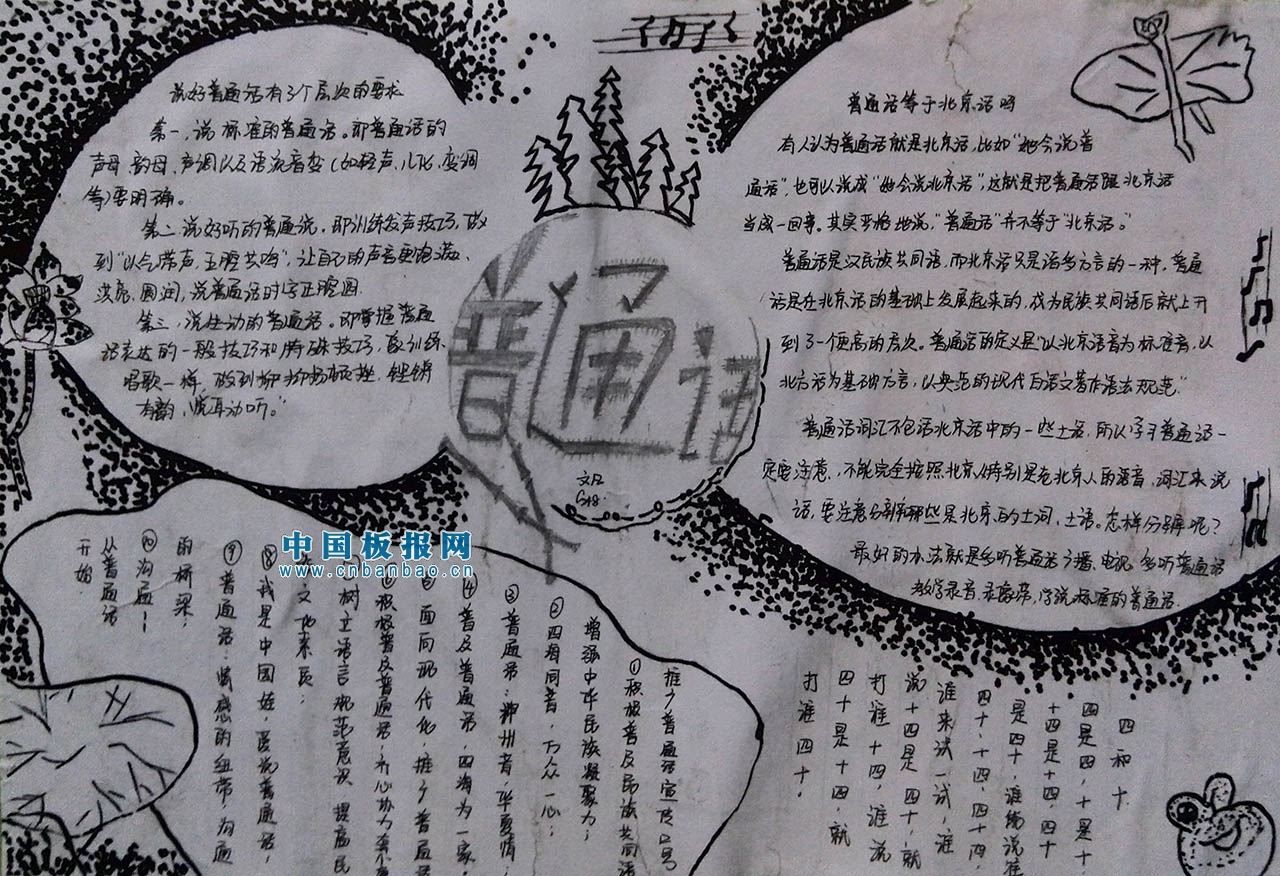 说好普通话有3个层次的要求
第一，说标准的普通话。即普通话的
声母、韵母、声调以及语流音变（如轻声，儿化，变调
等）要明确。
第二，说好听的普通说。即训练发声技巧，做
到“以气带声，五腔共鸣”，让自己的声音更饱满、
洪亮、圆润，说普通话时字正腔圆.
第三，说生动的普通话。即掌握普通
话表达的一般技巧和特殊技巧，
唱歌一样，做到抑扬顿挫，铿锵
有韵，悦耳动听。”
普通话
普通话等于北京话吗
有人认为普通话就是北京话，比如“她会说普
通话”，也可以说成“她会说北京话”，这就是把普通话跟北京话
当成一回事。其实严格地说，“普通话”并不等于“北京话。”
普通话是汉民族共同语，而北京话只是诸多方言的一种，普通
话是在北京话的基础上发展起来的，成为民族共同语后就上升
到了一个更高的层次。普通话的定义是“以北京语音为标准音，以
北方话为基础方言，以典范的现代白话文著作语法规范”
普通话词汇不包括北京话中的一些土话，所以学习普通话一
定要注意，不能完全按照北京人特别是老北京人的语音，词汇来说
话，要注意分辨哪些是北京的土词，土语。怎样分辨呢？
最好的办法就是多听普通话广播、电视，多听普通话
教学录音、录音带，学说标准的普通话.
中国板报网
www.cnbanbao.cn
推广普通话宣传口号
①积极普及民族共同语
增强中华民族凝聚力；
②四海同音，万众一心；
③普通话：神州音，华夏情；
④普及普通话，四海为一家
⑤面向现代化，推广普通话
积极普及普通话，齐心协力
树立语言规范意识，提高民
文化素质；
⑧我是中国娃，爱说普通话；
⑨普通话：情感的纽带，沟通
的桥梁；
⑩沟通——
从普通话
开始
四和十
四是四，十是十，
十四是十四，四十
是四十，谁能说准
四十、十四、四十四，
谁来试一试，谁
说十四是四十，就
打谁十四，谁说
四十是十四，就
打谁四十，